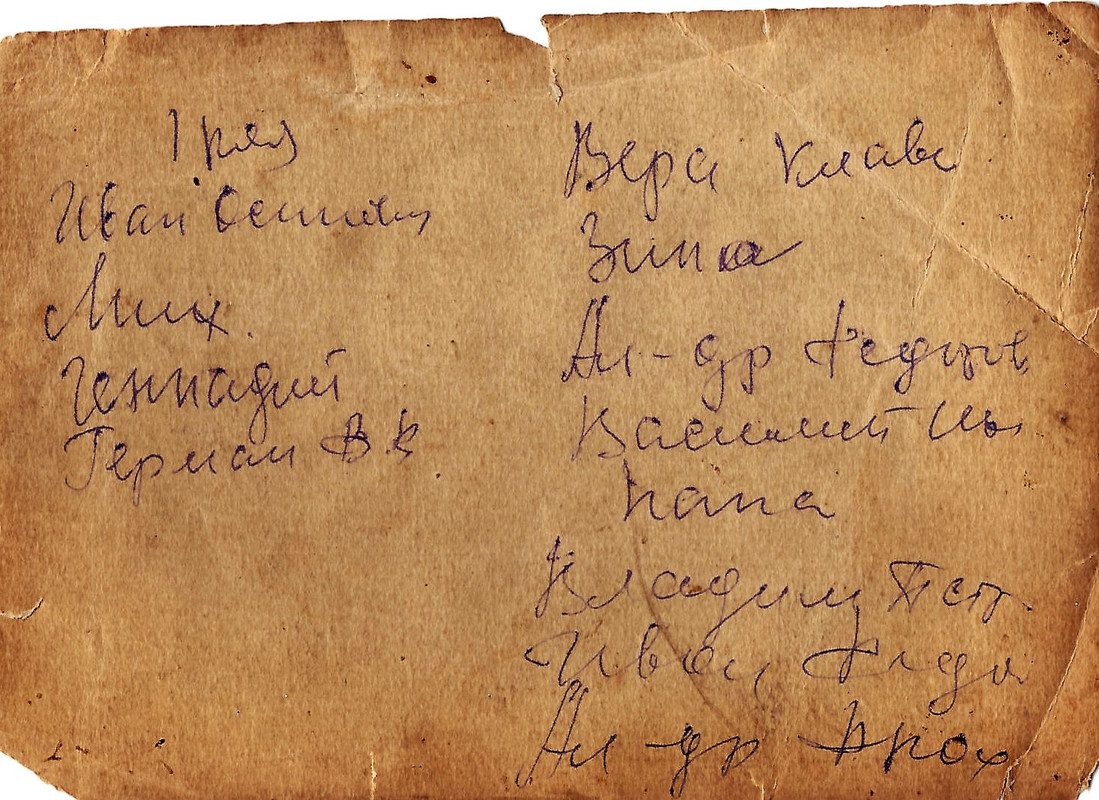 1 ряд
Иван Осипович
Мих.
Геннадий
Герман В.К
Вера Клавд
Зина
Ал-др Федоров
Василий
папа
Владим Пет.
Иван Федо
Ал-др Прох